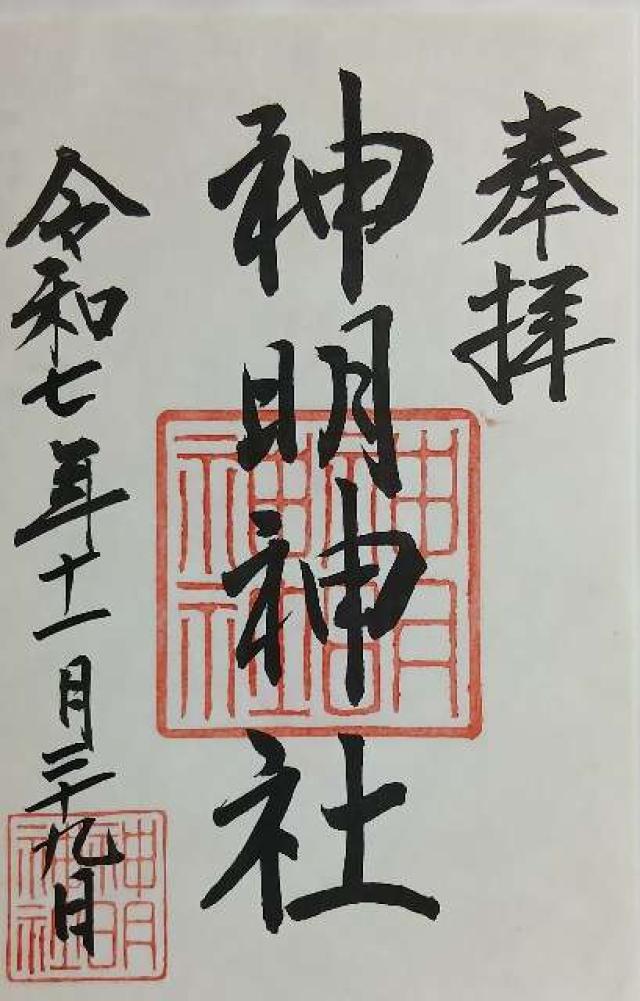 奉拝
神明神社
令和七年十一月二十九日
神明
神社
神明
神社